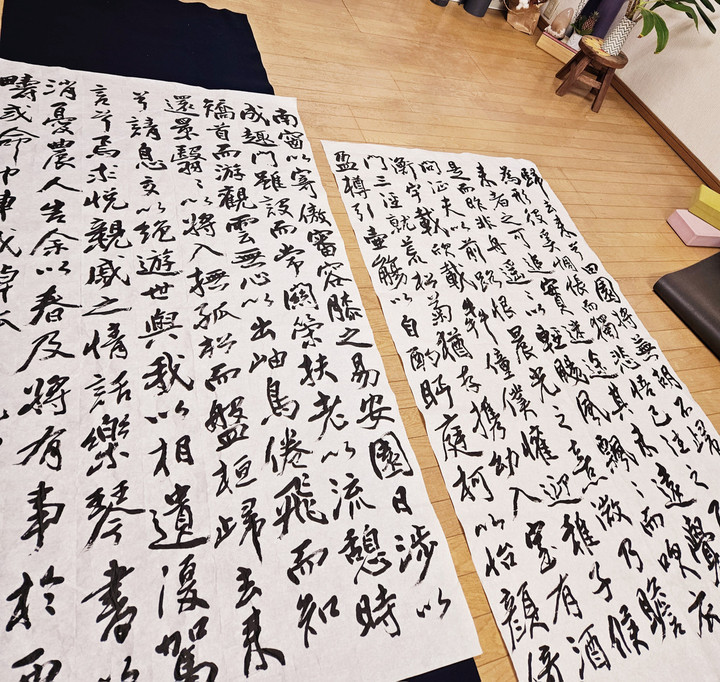 歸去來兮田園將蕪胡不歸
為形役奚惆悵而獨悲悟已往
來者之可追實迷途其未遠覺
是而昨非舟遙〻以輕颺風飄〻而吹衣
問征夫以前路恨晨光之熹微乃瞻
衡宇載欣載奔僮僕懽迎稚子候
門三徑就荒松菊猶存攜幼入室有酒
盈樽引壺觴以自酌眄庭柯以怡顏倚
南窗以寄傲審容膝之易安園日涉以
成趣門雖設而常關策扶老以流憩時
矯首而游觀雲無心以出岫鳥倦飛而知
還景翳〻以將入撫孤松而盤桓歸去來
兮請息交以絕遊世與我以相遺復駕
言兮焉求悅親戚之情話樂琴書以
消憂農人告余以春及將有事於西
疇或命巾車或棹孤